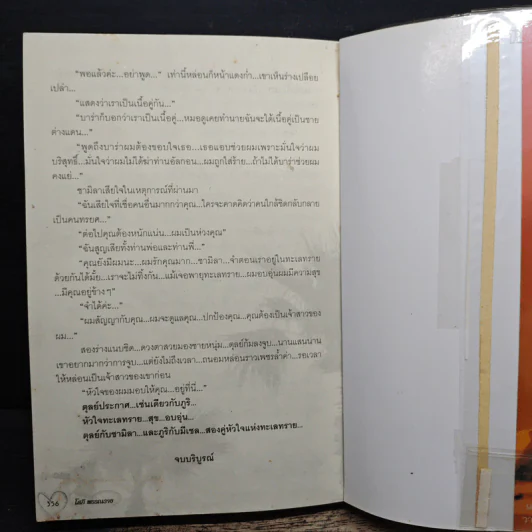 "พอแล้วค่ะ...อย่าพูด..." เท่านี้หล่อนก็หน้าแดงก่ำ...เขาเห็นร่างเปลือย
เปล่า...
"แสดงว่าเราเป็นเนื้อคู่กัน..."
"บาร่าก็บอกว่าเราเป็นเนื้อคู่...หมอดูเคยทำนายฉันจะได้เนื้อคู่เป็นชาย
ต่างแดน..."
"พูดถึงบาร่าผมต้องขอบใจเธอ...เธอแอบช่วยผมเพราะมั่นใจว่าผม
บริสุทธิ์...มั่นใจว่าผมไม่ได้ฆ่าท่านอัลกอน...ผมถูกใส่ร้าย...ถ้าไม่ได้บาร่าช่วยผม
คงแย่..."
ชามิลาเสียใจในเหตุการณ์ที่ผ่านมา
"ฉันเสียใจที่เชื่อคนอื่นมากกว่าคุณ...ใครจะคาดคิดว่าคนใกล้ชิดกลับกลาย
เป็นคนทรยศ..."
"ต่อไปคุณต้องหนักแน่น...ผมเป็นห่วงคุณ"
"ฉันสูญเสียทั้งท่านพ่อและท่านพี่..."
"คุณยังมีผมนะ...ผมรักคุณมาก...ชามิลา...จำตอนเราอยู่ในทะเลทราย
ด้วยกันได้มั้ย...เราจะไม่ทิ้งกัน...แม้เจอพายุทะเลทราย...ผมอบอุ่นผมมีความสุข
...มีคุณอยู่ข้างๆ"
"จำได้ค่ะ..."
"ผมสัญญากับคุณ...ผมจะดูแลคุณ...ปกป้องคุณ...คุณต้องเป็นเจ้าสาวของ
ผม..."
สองร่างแนบชิด...ดวงตาสวยมองชายหนุ่ม...ดุลย์ก้มลงจูบ...นานแสนนาน
เขาอยากมากกว่าการจูบ...แต่ยังไม่ถึงเวลา...ถนอมหล่อนราวเพชรล้ำค่า...รอเวลา
ให้หล่อนเป็นเจ้าสาวของเขาก่อน
"หัวใจของผมมอบให้คุณ...อยู่ที่นี่..."
ดุลย์ประกาศ...เช่นเดียวกับภูริ...
หัวใจทะเลทราย...สุข...อบอุ่น...
ดุลย์กับชามิลา...และภูริกับมิเชล...สองคู่หัวใจแห่งทะเลทราย...
จบบริบูรณ์
336